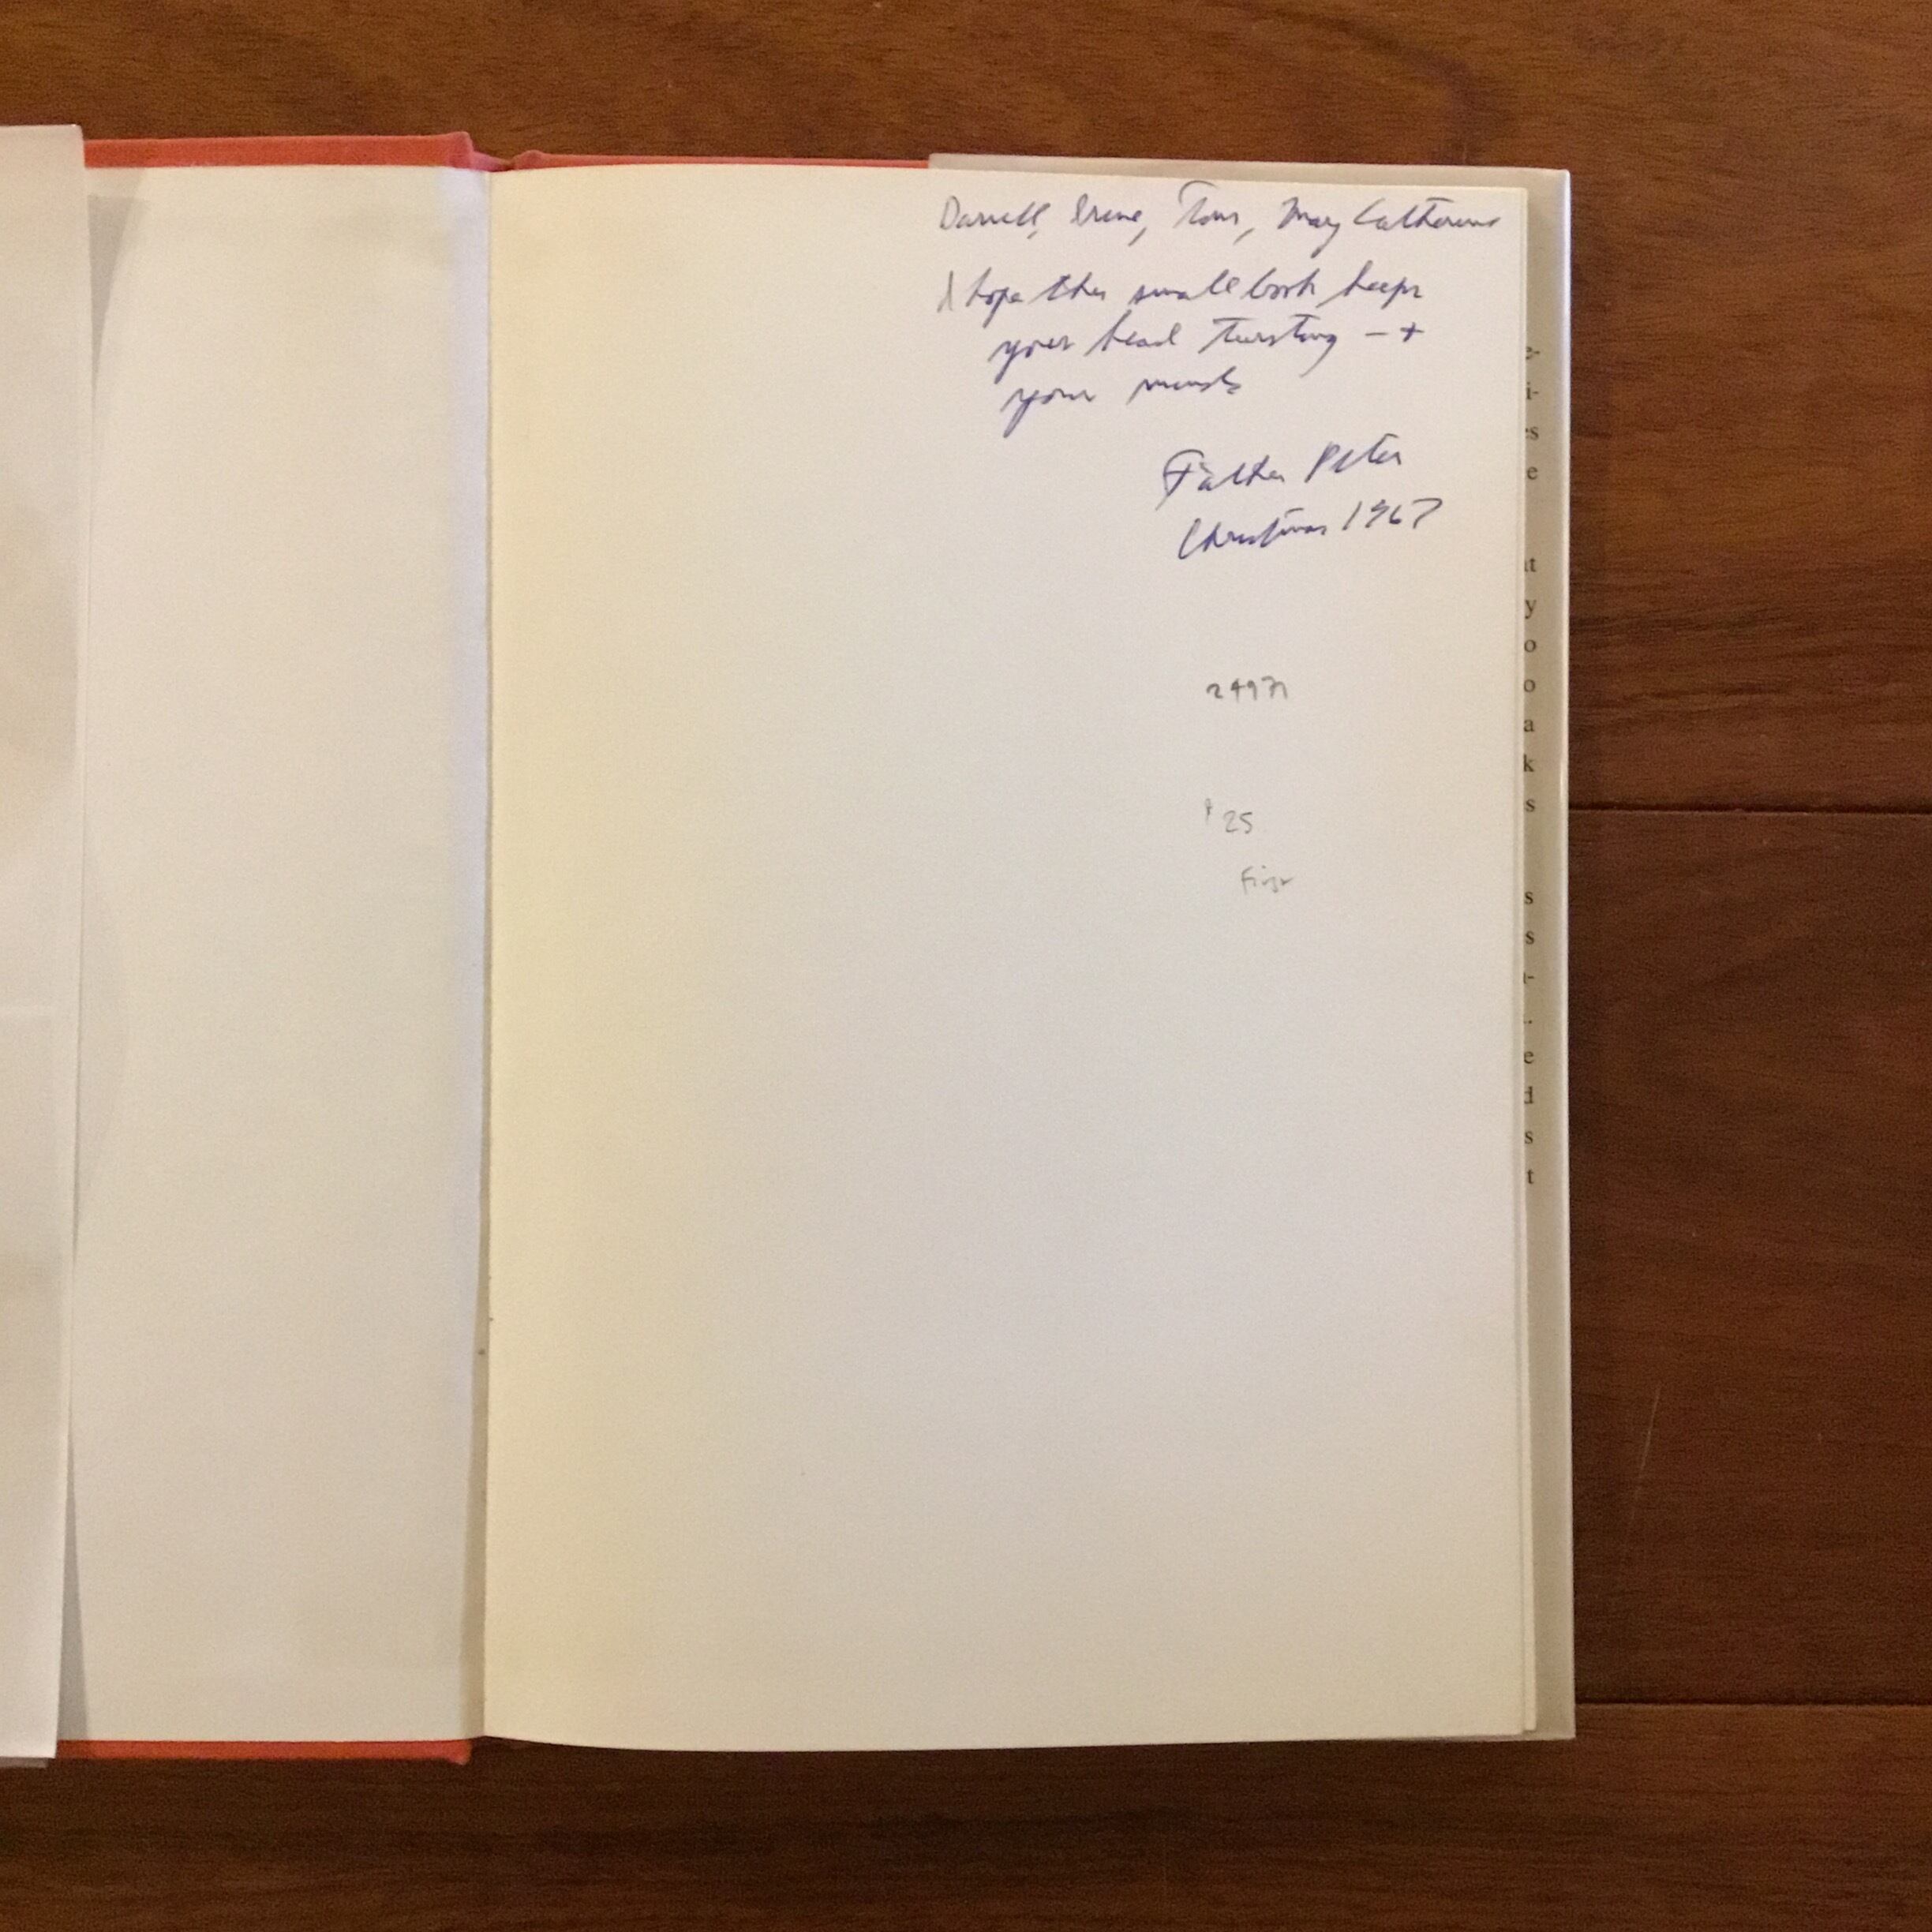 Darrell, Irene, Tom, Mary Catherine
I hope this small book keeps
your head twisting – +
your minds
Father Peter
Christmas 1967
$25
First
e-
i-
es
e
at
y
o
o
a
k
s
s
s
-
..
e
d
s
t